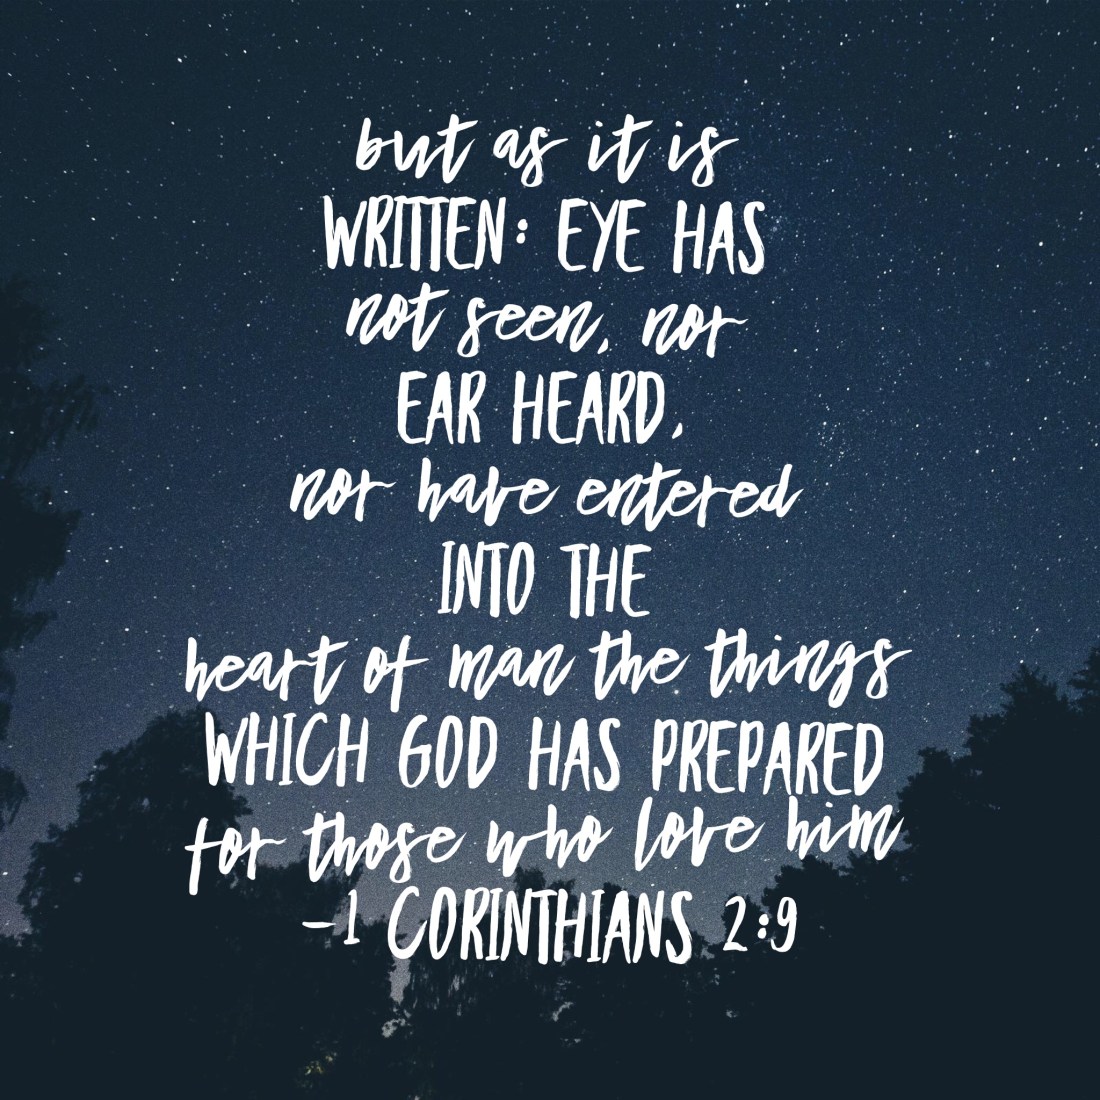 but as it is
WRITTEN: EYE HAS
not seen, nor
EAR HEARD,
nor have entered
INTO THE
heart of man the things
WHICH GOD HAS PREPARED
for those who love him
-1 CORINTHIANS 2:9